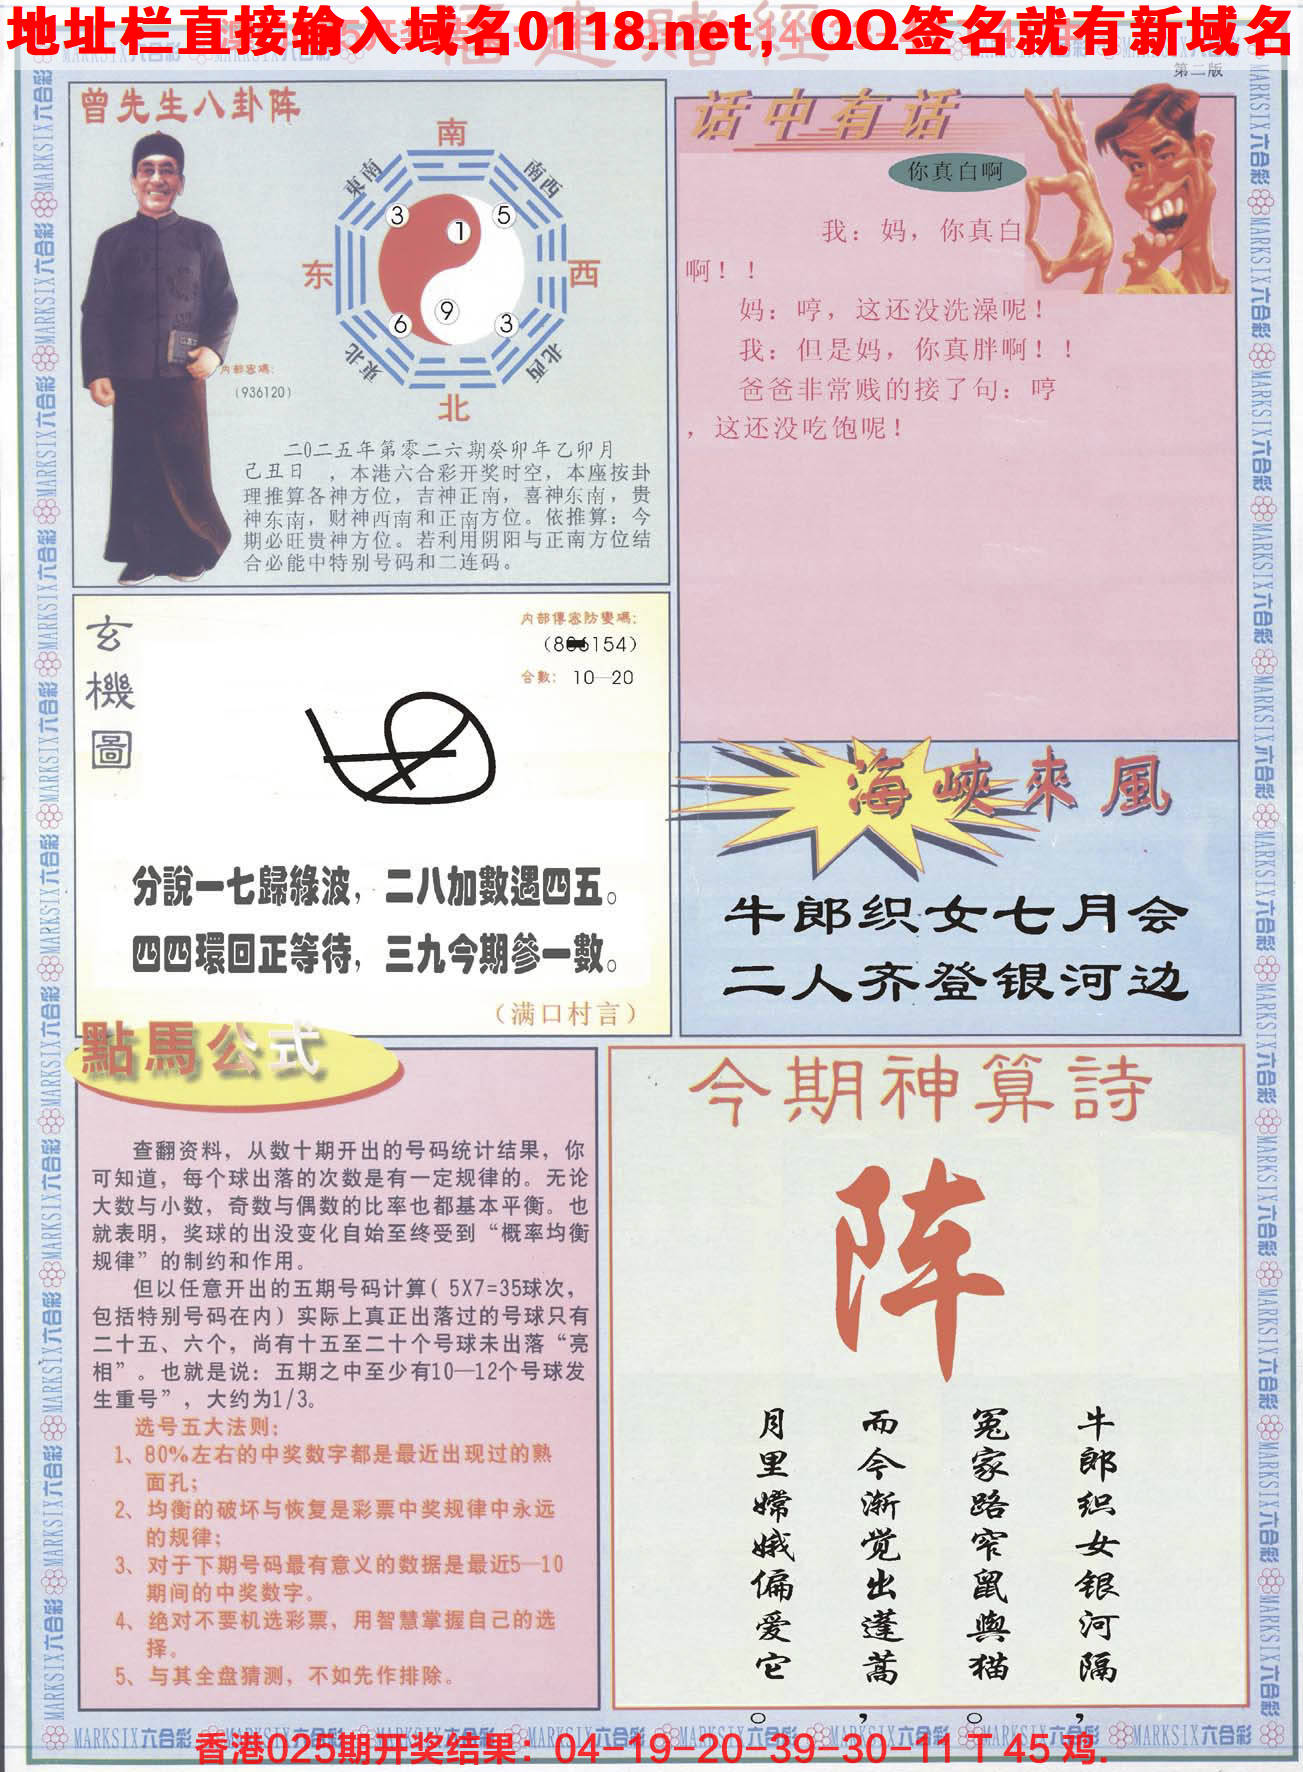 地址栏直接输入域名0118.net，QQ签名就有新域名
第二版
曾先生八卦阵
南
東南
南西
3
1
5
东
西
6
9
3
東北
北西
北
内部密碼：
（936120）
二0二五年第零二六期癸卯年乙卯月
己丑日 ，本港六合彩开奖时空，本座按卦
理推算各神方位，吉神正南，喜神东南，贵
神东南，财神西南和正南方位。依推算：今
期必旺贵神方位。若利用阴阳与正南方位结
合必能中特别号码和二连码。
话中有话
你真白啊
我：妈，你真白
啊！！
妈：哼，这还没洗澡呢！
我：但是妈，你真胖啊！！
爸爸非常贱的接了句：哼
，这还没吃饱呢！
玄機圖
内部傳密防變碼：
154）
合數： 10—20
分說一七歸綠波，二八加數遇四五。
四四環回正等待，三九今期參一數。
（满口村言）
海峽來風
牛郎织女七月会
二人齐登银河边
點馬公式
查翻资料，从数十期开出的号码统计结果，你
可知道，每个球出落的次数是有一定规律的。无论
大数与小数，奇数与偶数的比率也都基本平衡。也
就表明，奖球的出没变化自始至终受到“概率均衡
规律”的制约和作用。
但以任意开出的五期号码计算( 5X7=35球次，
包括特别号码在内）实际上真正出落过的号球只有
二十五、六个，尚有十五至二十个号球未出落“亮
相”。也就是说：五期之中至少有10—12个号球发
生重号”，大约为1/3。
选号五大法则：
1、80%左右的中奖数字都是最近出现过的熟
面孔；
2、均衡的破坏与恢复是彩票中奖规律中永远
的规律；
3、对于下期号码最有意义的数据是最近5—10
期间的中奖数字。
4、绝对不要机选彩票，用智慧掌握自己的选
择。
5、与其全盘猜测，不如先作排除。
今期神算詩
阵
牛郎织女银河隔，
冤家路窄鼠與猫。
而今渐觉出蓬蒿，
月里嫦娥偏爱它。
MARKSIX六合彩
香港025期开奖结果：04-19-20-39-30-11 T 45 鸡.